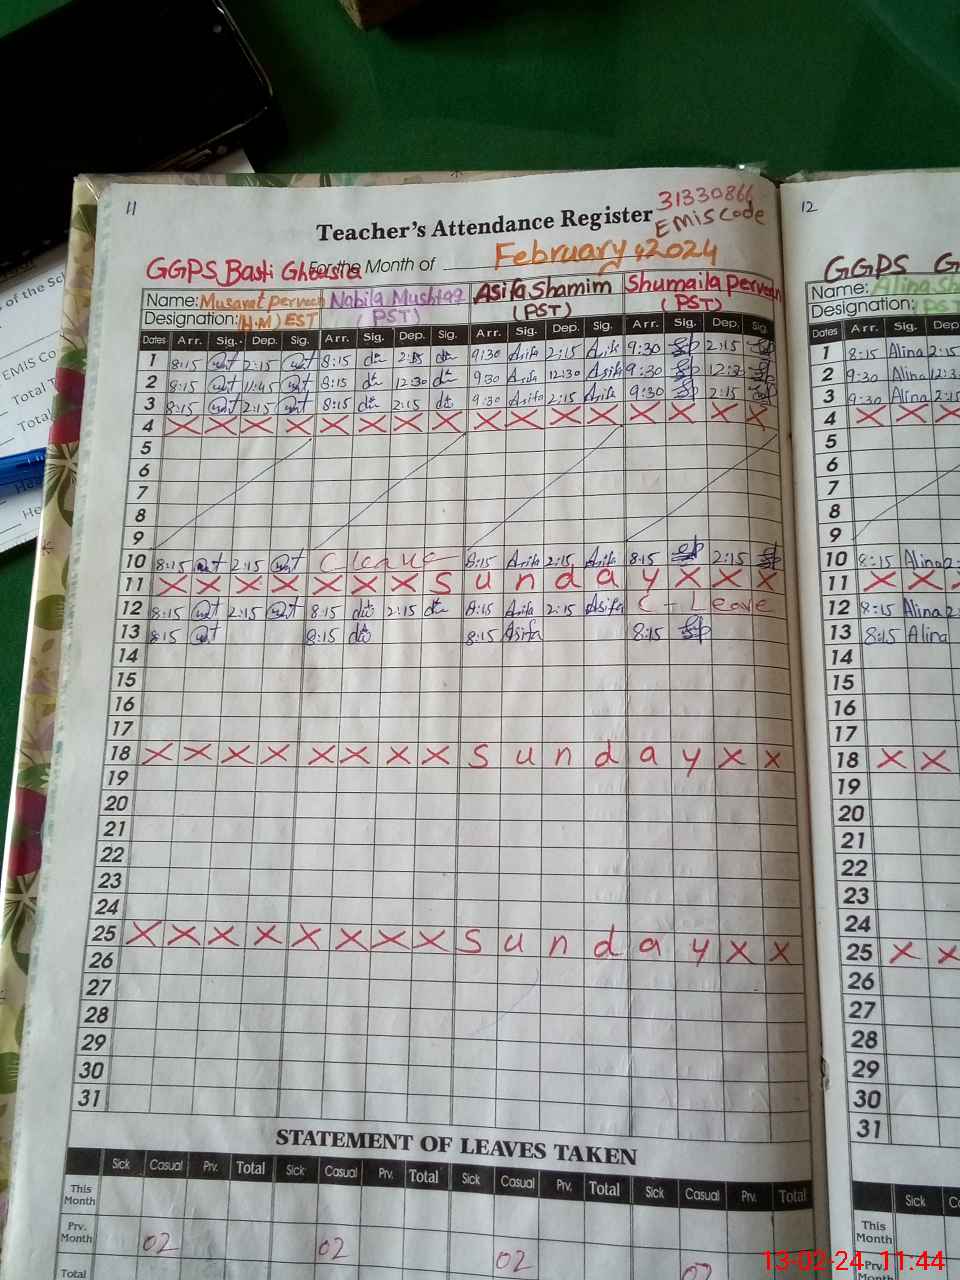 11
Teacher's Attendance Register
31330866
EMIS Code
GGPS Basti Gheesha
For the Month of February, 2024
Name: Musarat perveen Nabila Mushtaq Asifa Shamim Shumaila Perveen
Designation: (H.M) EST (PST) (PST) (PST)
Dates Arr. Sig. Dep. Sig. Arr. Sig. Dep. Sig. Arr. Sig. Dep. Sig. Arr. Sig. Dep. Sig.
1 8:15 2:15 8:15 2:15 9:30 Asifa 2:15 Asifa 9:30 2:15
2 8:15 11:45 8:15 12:30 9:30 Asifa 12:30 Asifa 9:30
3 8:15 2:15 8:15 2:15 9:30 Asifa 2:15 Asifa 9:30 2:15
4 X X X X X X X X X X X X X X X X
5
6
7
8
9
10 8:15 2:15 C leave 8:15 Asifa 2:15 Asifa 8:15 2:15
11 X X X X X X X S u n d a y X X X
12 8:15 2:15 8:15 2:15 8:15 Asifa 2:15 Asifa C - Leave
13 8:15 8:15 8:15 Asifa 8:15
14
15
16
17
18 X X X X X X X X S u n d a y X X
19
20
21
22
23
24
25 X X X X X X X X S u n d a y X X
26
27
28
29
30
31
STATEMENT OF LEAVES TAKEN
Sick Casual Prv. Total Sick Casual Prv. Total Sick Casual Prv. Total Sick Casual Prv. Total
This Month
Prv. Month 02 02 02 02
Total
12
GGPS G
Name: Alina Sh
Designation: (PST
Dates Arr. Sig. Dep
1 8:15 Alina 2:15
2 9:30 Alina 12:3
3 9:30 Alina 2:15
4 X X X
5
6
7
8
9
10 8:15 Alina 2:
11 X X X
12 8:15 Alina 2:
13 8:15 Alina
14
15
16
17
18 X X
19
20
21
22
23
24
25 X X
26
27
28
29
30
31
Sick
This Month
Prv. Month
Total
of the Sc
EMIS Co
Total T
Total
He
He
13-02-24 11:44